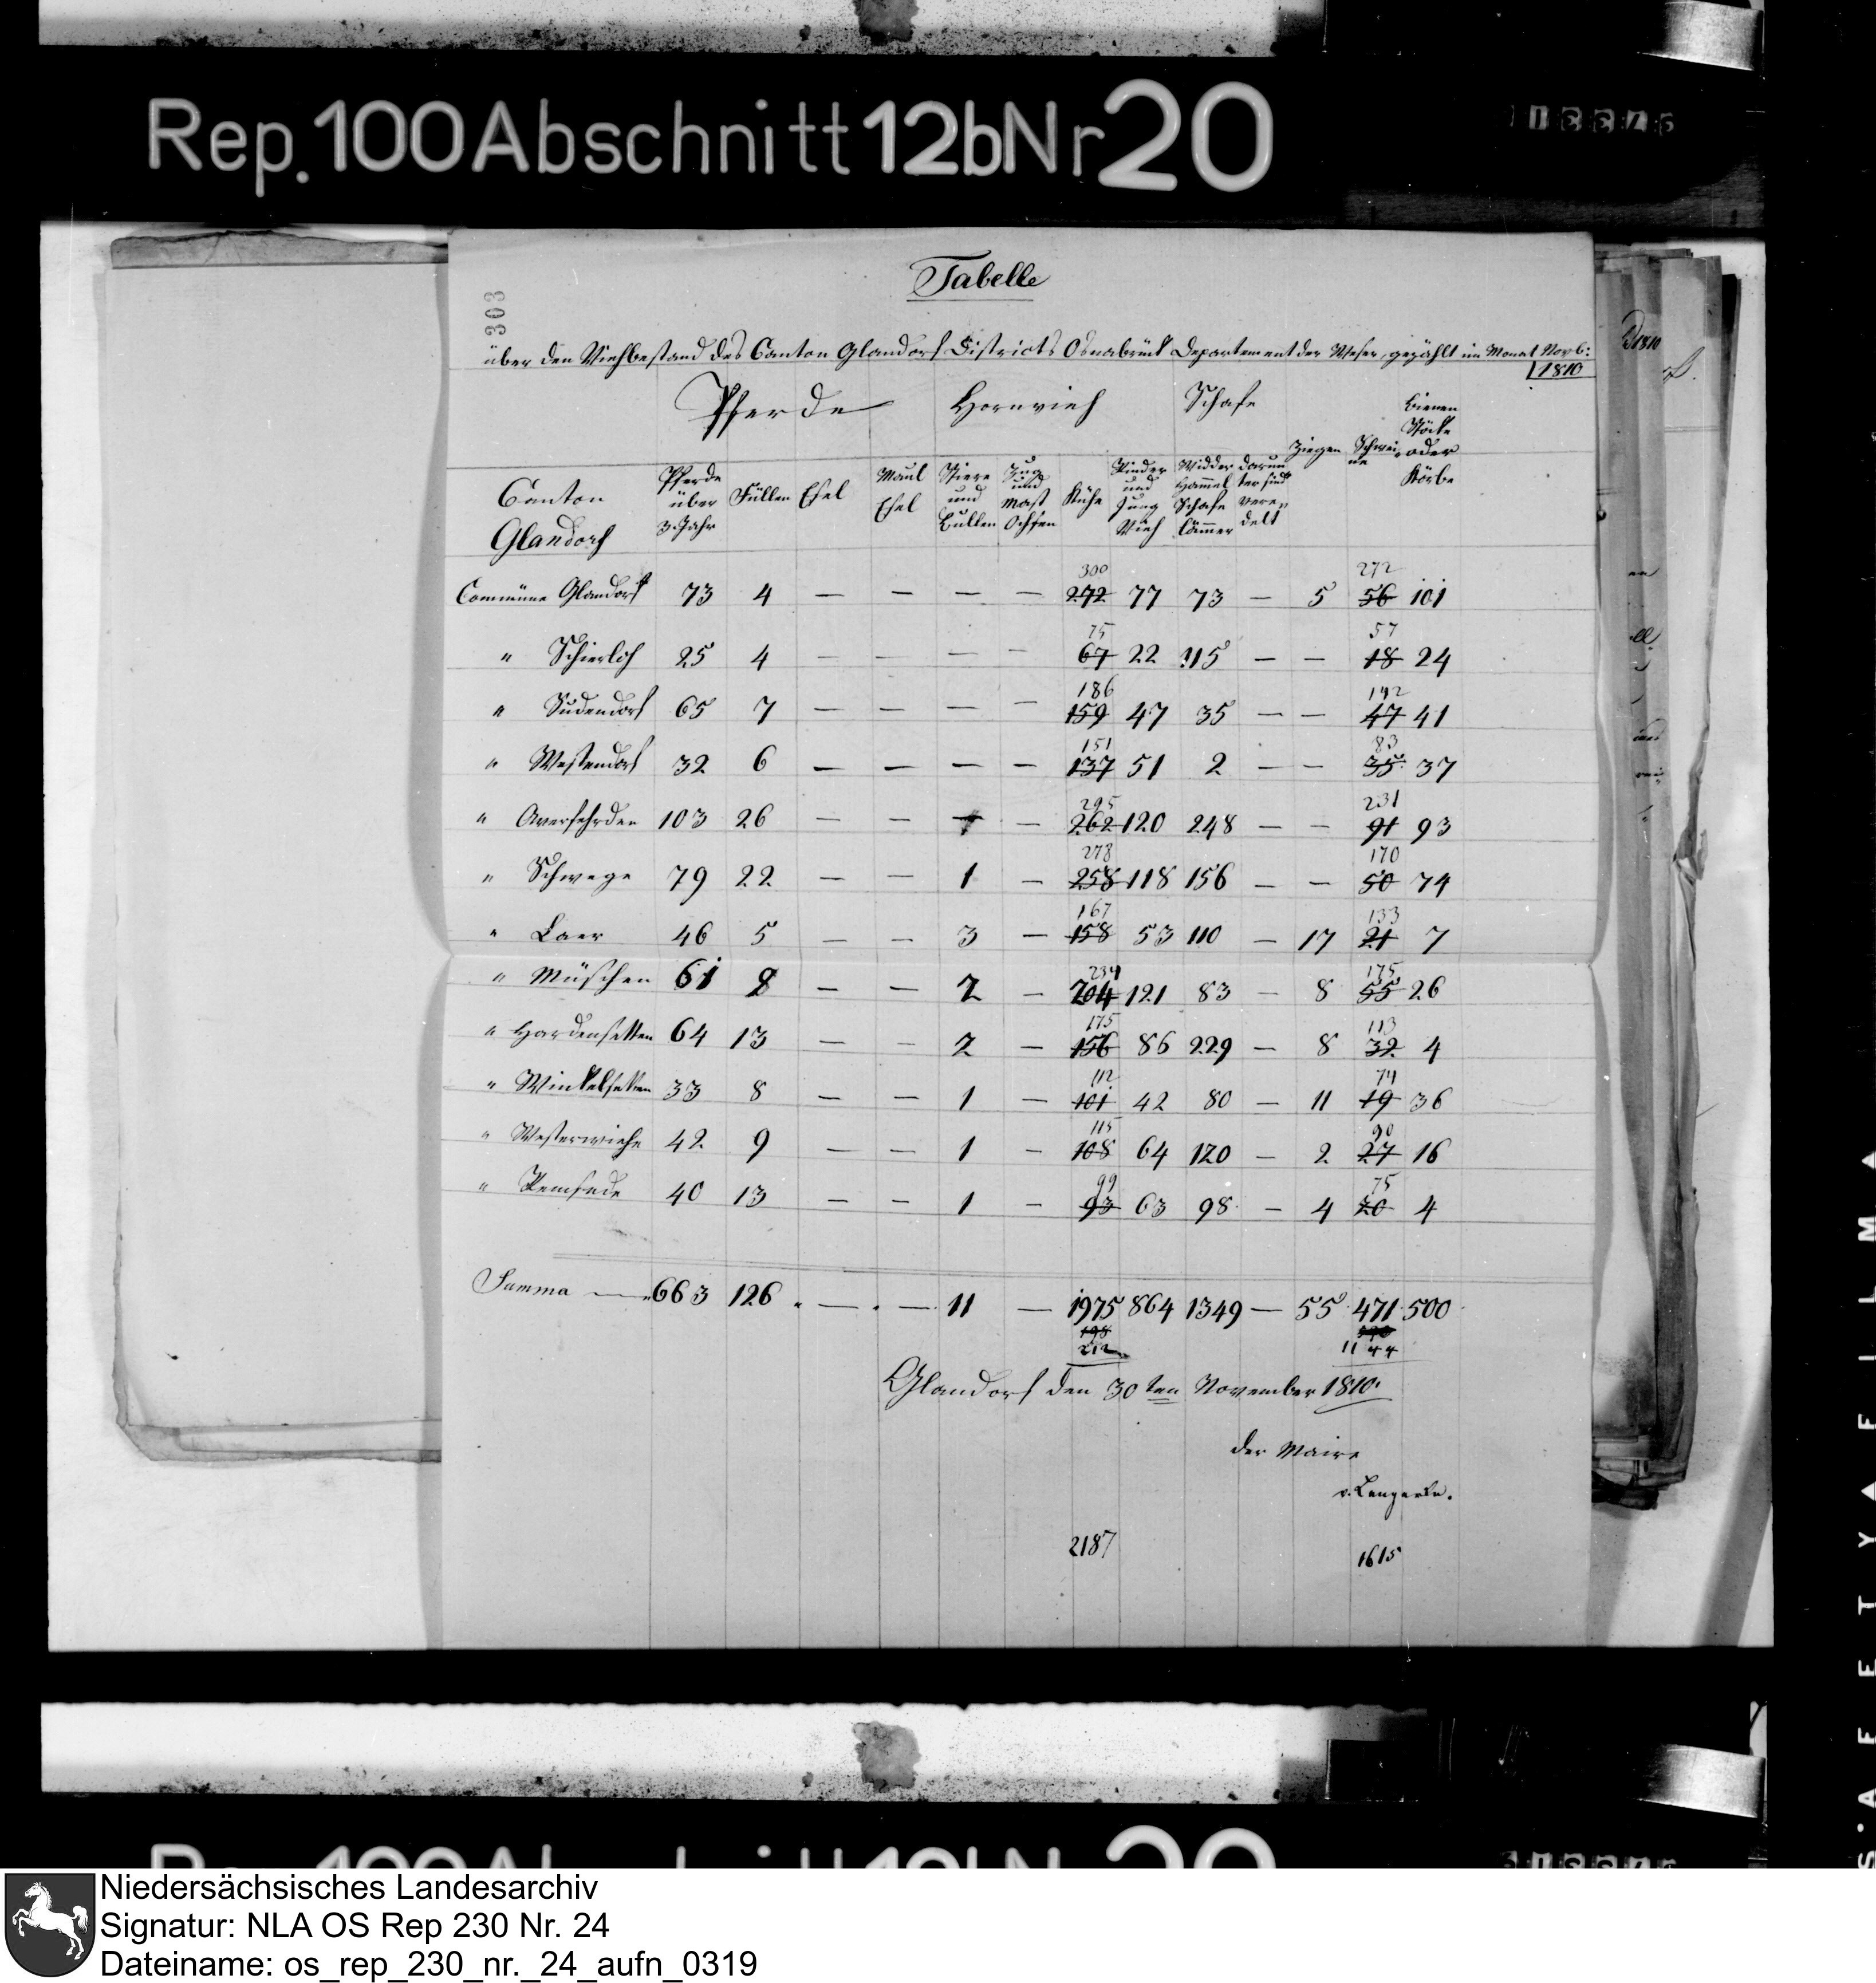 Rep. 100 Abschnitt 12b Nr 20
303
Tabelle
über den Viehbestand des Canton Glandorf Districts Osnabrück Departement der Weser, gezählt im Monat Novb:
1810
Pferde Hornvieh Schafe
Canton Glandorf | Pferde über 3 Jahr | Füllen | Esel | Maul Esel | Stiere und Bullen | Zug und Mast Ochsen | Kühe | Rinder und Jung Vieh | Widder Hammel Schafe Lämmer | darun ter sind vere delt | Ziegen | Schwei ne | Bienen Stöcke oder Körbe
300 272
Commüne Glandorf 73 4 — — — — 272 77 73 — 5 56 101
75 57
" Schierloh 25 4 — — — — 67 22 115 — — 18 24
186 142
" Sudendorf 65 7 — — — — 159 47 35 — — 47 41
151 83
" Westendorf 32 6 — — — — 137 51 2 — — 35 37
295 231
" Averfehrden 103 26 — — — — 262 120 248 — — 91 93
278 170
" Schwege 79 22 — — 1 — 258 118 156 — — 50 74
167 133
" Laer 46 5 — — 3 — 158 53 110 — 17 21 7
234 175
" Müschen 61 9 — — 2 — 204 121 83 — 8 55 26
175 113
" Hardensetten 64 13 — — 2 — 156 86 229 — 8 32 4
112 74
" Winkelsetten 33 8 — — 1 — 101 42 80 — 11 19 36
115 90
" Westerwiehe 42 9 — — 1 — 108 64 120 — 2 27 16
99 75
" Remsede 40 13 — — 1 — 93 63 98 — 4 20 4
Summa — 663 126 — — 11 — 1975 864 1349 — 55 471 500
198
212 1144
Glandorf den 30ten November 1810.
der Maire
v. Lengerke.
2187 1615
Niedersächsisches Landesarchiv
Signatur: NLA OS Rep 230 Nr. 24
Dateiname: os_rep_230_nr._24_aufn_0319